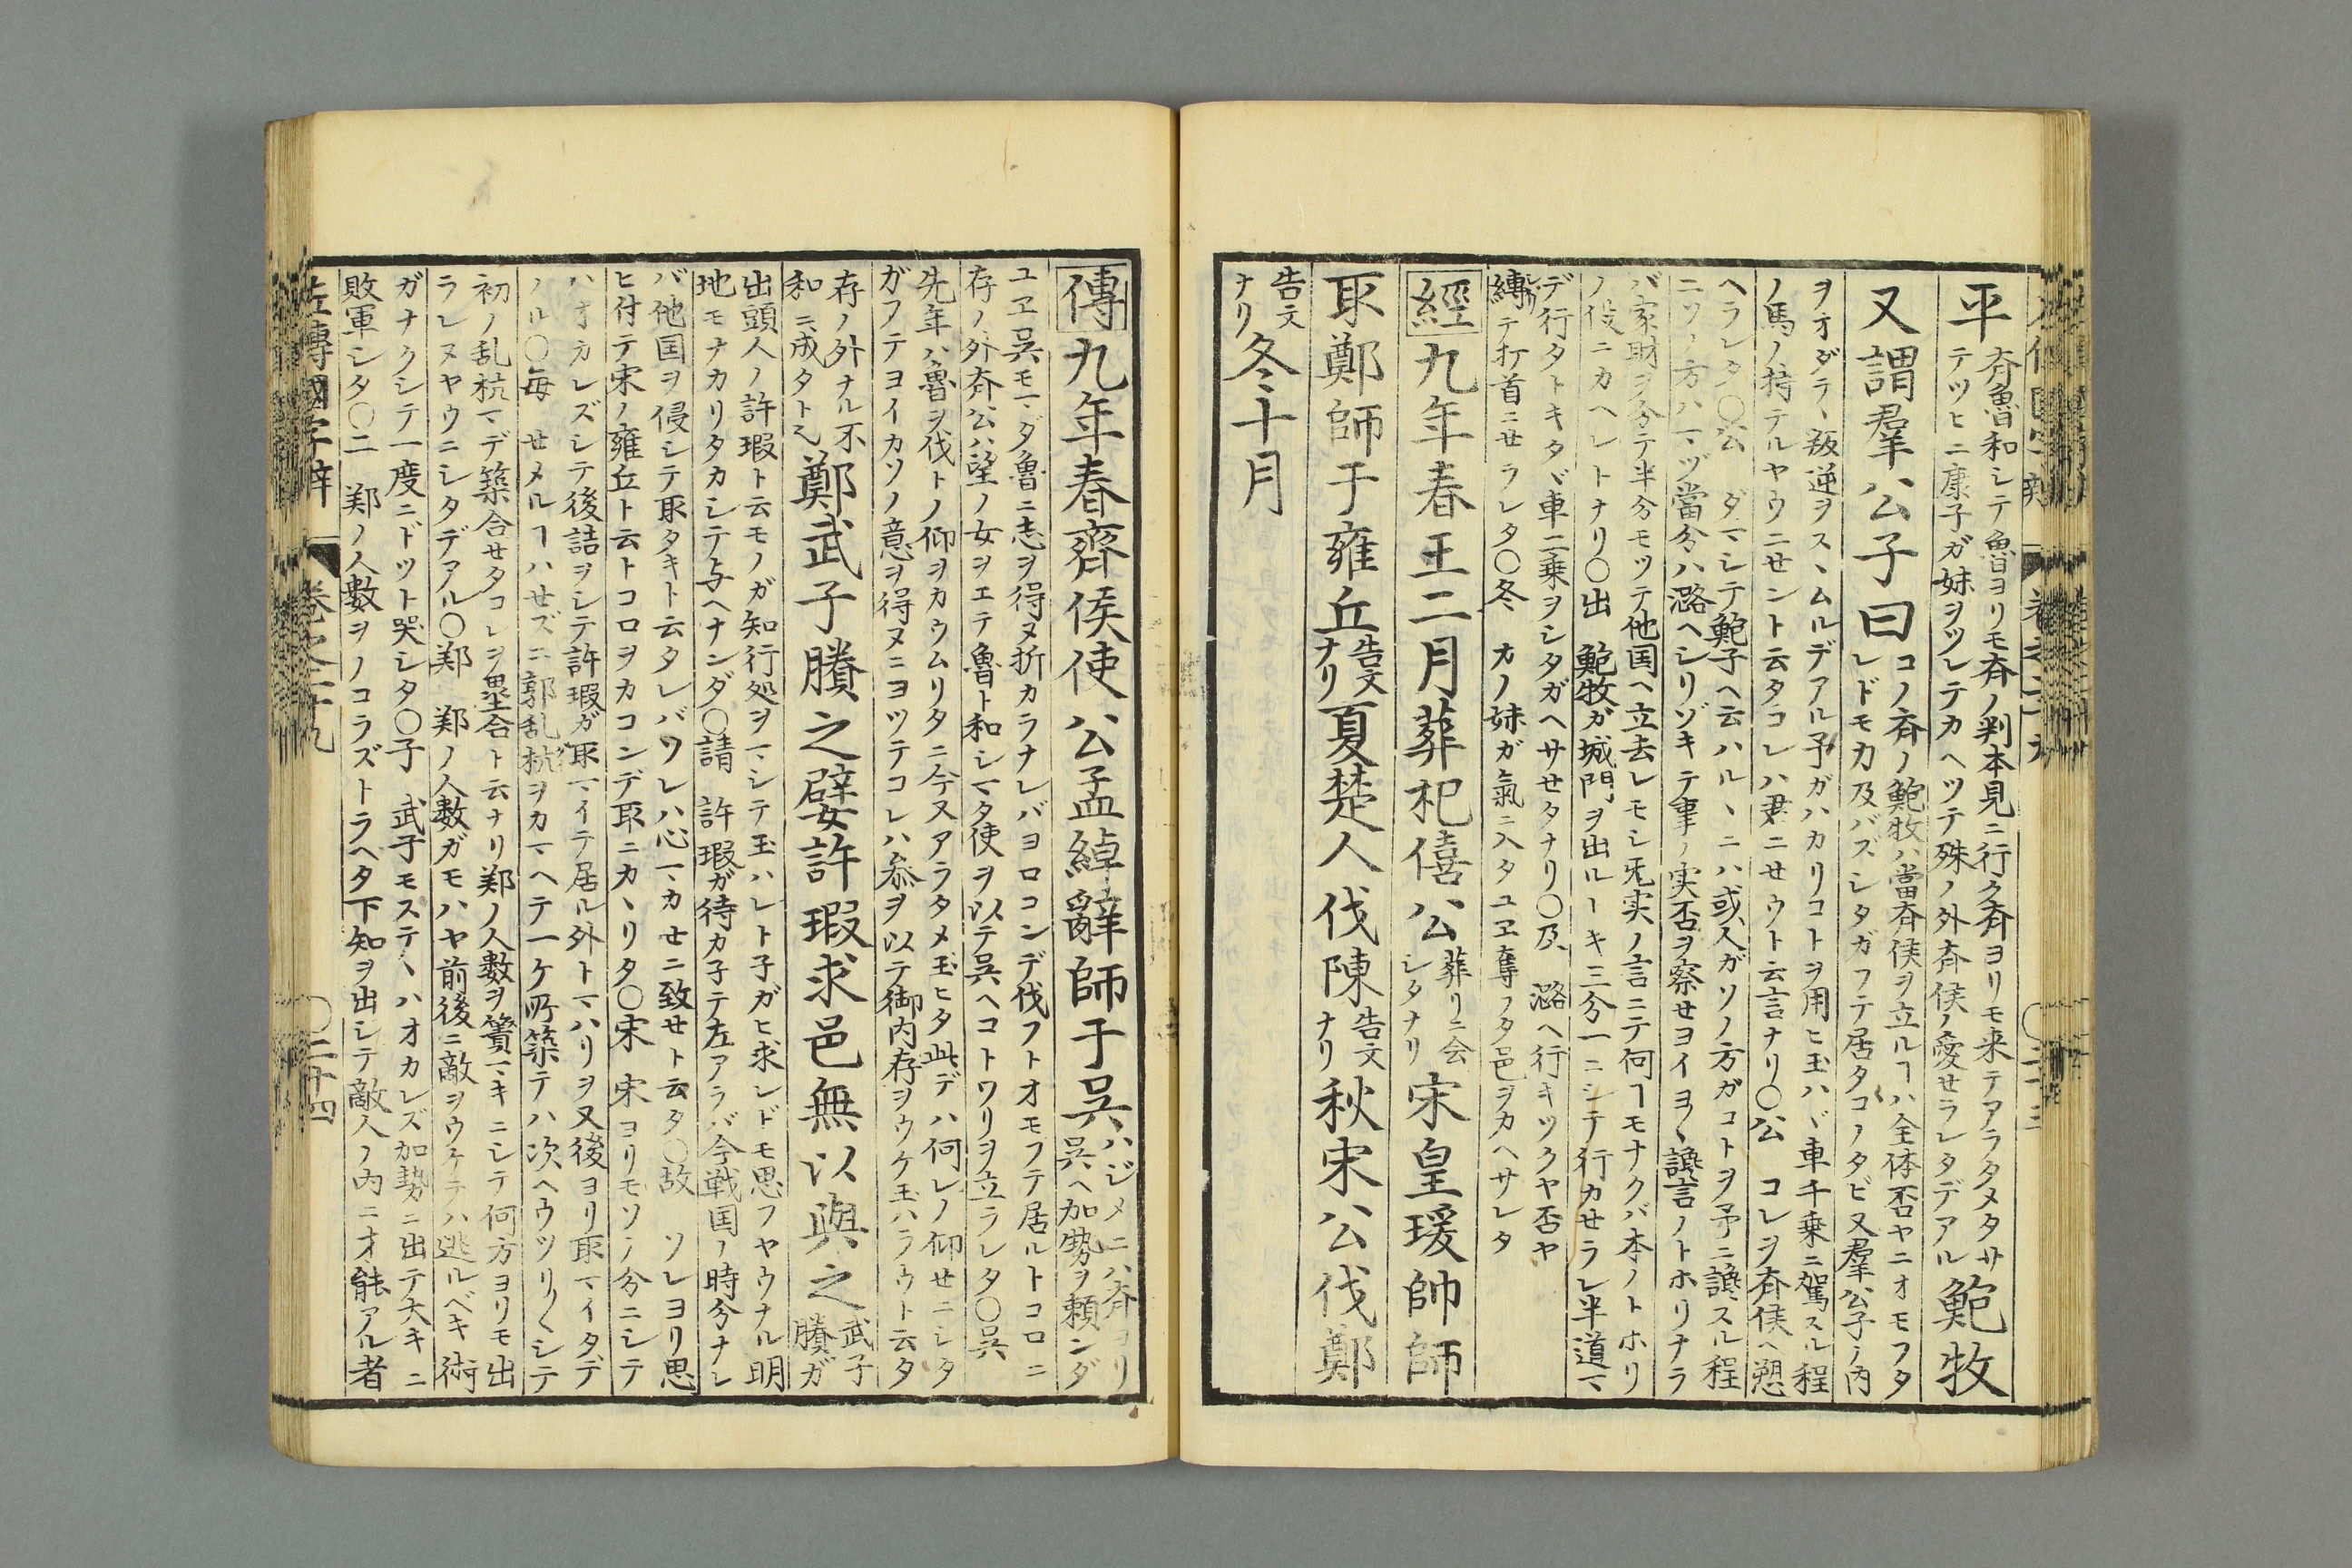 平
斉魯和シテ魯ヨリモ斉ノ判本見ニ行ク斉ヨリモ来テアラタメタサ
テツヒニ康子ガ妹ヲツレテカヘツテ殊ノ外斉侯ノ愛セラレタデアル
鮑牧
又謂羣公子曰
コノ斉ノ鮑牧ハ當斉侯ヲ立ルヿハ全体否ヤニオモフタ
レドモ力及バズシタガフテ居タコノタビ又羣公子ノ内
ヲオダラヽ叛逆ヲスヽムルデアル予ガハカリコトヲ用ヒ玉ハヾ車千乗ニ駕スル程
ノ馬ノ持テルヤウニセント云タコレハ君ニセウト云言ナリ〇公 コレヲ斉侯ヘ愬
ヘラレタ〇公 ダマシテ鮑子ヘ云ハルヽニハ或人ガソノ方ガコトヲ予ニ讒スル程
ニソノ方ハマヅ當分ハ潞ヘシリゾキテ事ノ実否ヲ察セヨイヨ〱讒言ノトホリナラ
バ家財ヲ分テ半分モツテ他国ヘ立去レモシ旡実ノ言ニテ何ヿモナクバ本ノトホリ
ノ役ニカヘレトナリ〇出 鮑牧ガ城門ヲ出ルヿキ三分一ニシテ行カセラレ半道マ
デ行タトキタヾ車二乗ヲシタガヘサセタナリ〇及 潞ヘ行キツクヤ否ヤ
縛テ打首ニセラレタ〇冬 カノ妹ガ氣ニ入タユヱ奪フタ邑ヲカヘサレタ
經九年春王二月葬杞僖公
葬リニ会
シタナリ
宋皇瑗帥師
取鄭師于雍丘
告文
ナリ
夏楚人伐陳
告文
ナリ
秋宋公伐鄭
告文
ナリ
冬十月
傳九年春齊侯使公孟綽辭師于吳
ハジメニハ斉ヨリ
吳ヘ加勢ヲ頼ンダ
ユヱ吳モマダ魯ニ志ヲ得ヌ折カラナレバヨロコンデ伐フトオモフテ居ルトコロニ
存ノ外斉公ハ望ノ女ヲエテ魯ト和シマタ使ヲ以テ吳ヘコトワリヲ立ラレタ〇吳
先年ハ魯ヲ伐トノ仰ヲカウムリタニ今又アラタメ玉ヒタ此デハ何レノ仰セニシタ
ガフテヨイカソノ意ヲ得ヌニヨツテコレハ参ヲ以テ御内存ヲウケ玉ハラウト云タ
存ノ外ナル不
和ニ成タト乄
鄭武子賸之嬖許瑕求邑無以與之
武子
賸ガ
出頭人ノ許瑕ト云モノガ知行処ヲマシテ玉ハレト子ガヒ求レドモ思フヤウナル明
地モナカリタカシテ与ヘナンダ〇請 許瑕ガ待カ子テ左アラバ今戦国ノ時分ナレ
バ他国ヲ侵シテ取タキト云タレバワレハ心マカセニ致セト云タ〇故 ソレヨリ思
ヒ付テ宋ノ雍丘ト云トコロヲカコンデ取ニカヽリタ〇宋 宋ヨリモソノ分ニシテ
ハオカレズシテ後詰ヲシテ許瑕ガ取マイテ居ル外トマハリヲ又後ヨリ取マイタデ
ノル〇毎 セメルヿハセズニ郭乱杭ヲカマヘテ一ケ所築テハ次ヘウツリ〱シテ
初ノ乱杭マデ築合セタコレヲ壘合ト云ナリ鄭ノ人数ヲ簀マキニシテ何方ヨリモ出
ラレヌヤウニシタデアル〇鄭 鄭ノ人数ガモハヤ前後ニ敵ヲウケテハ逃ルベキ術
ガナクシテ一度ニドツト哭シタ〇子 武子モステヽハオカレズ加勢ニ出テ大キニ
敗軍シタ〇二 鄭ノ人数ヲノコラズトラヘタ下知ヲ出シテ敵人ノ内ニオ能アル者
左傳國字辯 巻之二十九 〇二十四